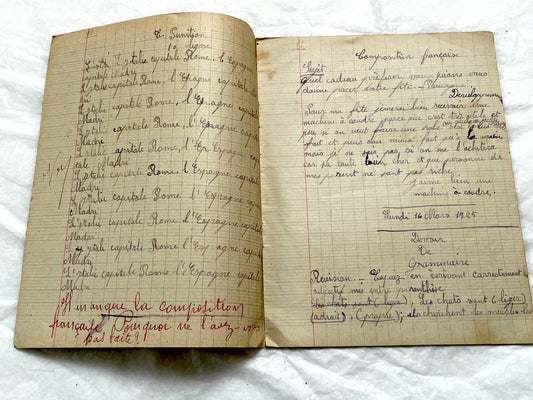 Punition
10 ligne
L'Italie capitale Rome, l'Espagne
capitale Madri
L'Italie capitale Rome, l'Espagne capitale
Madri
L'Italie capitale Rome, l'Espagne capitale
Madri
L'Italie capitale Rome, l'Espagne capitale
Madri
L'Italie capitale Rome, l'Espagne capi
tale Madri
L'Italie capitale Rome, l'Espagne capitale
Madri
L'Italie capitale Rome, l'Espagne capitale
Madri
L'Italie capitale Rome l'Espagne capitale
Madri
L'Italie capitale Rome l'Espagne capitale
Madri
L'Italie capitale Rome l'Espagne capitale
Il manque la composition
française. Pourquoi ne l'avez-vous
pas faite?
Composition française
Sujet
Quel cadeau préférez vous quand vous
donne pour votre fête - Pourquoi
Développement
Pour ma fête j'aimerai bien recevoir une
machine à coudre parce que c'est très utile et
peu si on veut faire une robe c'est plus vite
fait et puis aux moins fait à la main
mais je ne sais pas si on me l'achètera
car sa coute bien cher et que personne de
mes parent ne sont pas riche.
J'aime bien une
machine à coudre.
Lundi 16 Mars 1925
Devoir
De
Grammaire
Révision. - Copiez en écrivant correctement
mis entre parenthèse
Les chats sont (léger) Les chats sont (léger)
(adroit), (propre); cherchent les